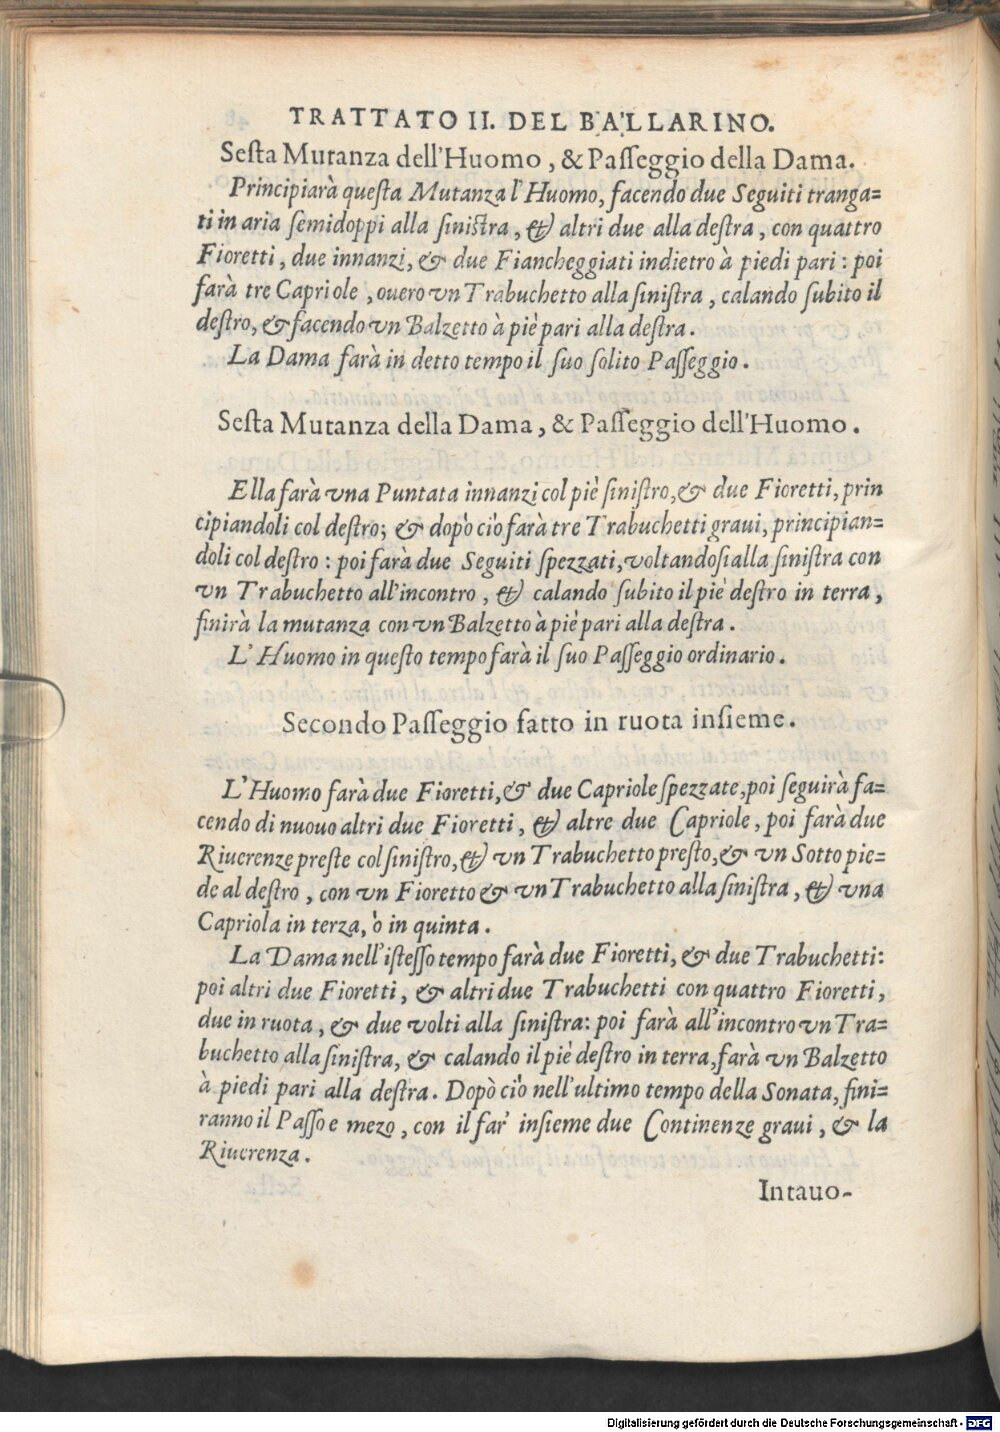 TRATTATO II. DEL BALLARINO.
Seſta Mutanza dell'Huomo, & Paſſeggio della Dama.
Principiarà queſta Mutanza l'Huomo, facendo due Seguiti tranga=
ti in aria ſemidoppi alla ſiniſtra, & altri due alla deſtra, con quattro
Fioretti, due innanzi, & due Fiancheggiati indietro à piedi pari: poi
farà tre Capriole, ouero vn Trabuchetto alla ſiniſtra, calando ſubito il
deſtro, & facendo vn Balzetto à piè pari alla deſtra.
La Dama farà in detto tempo il ſuo ſolito Paſſeggio.
Seſta Mutanza della Dama, & Paſſeggio dell'Huomo.
Ella farà vna Puntata innanzi col piè ſiniſtro, & due Fioretti, prin
cipiandoli col deſtro; & dopò ciò farà tre Trabuchetti graui, principian=
doli col deſtro: poi farà due Seguiti ſpezzati, voltandoſi alla ſiniſtra con
vn Trabuchetto all'incontro, & calando ſubito il piè deſtro in terra,
finirà la mutanza con vn Balzetto à piè pari alla deſtra.
L'Huomo in queſto tempo farà il ſuo Paſſeggio ordinario.
Secondo Paſſeggio fatto in ruota inſieme.
L'Huomo farà due Fioretti, & due Capriole ſpezzate, poi ſeguirà fa=
cendo di nuouo altri due Fioretti, & altre due Capriole, poi farà due
Riuerenze preſte col ſiniſtro, & vn Trabuchetto preſto, & vn Sotto pie=
de al deſtro, con vn Fioretto & vn Trabuchetto alla ſiniſtra, & vna
Capriola in terza, ò in quinta.
La Dama nell'iſteſſo tempo farà due Fioretti, & due Trabuchetti:
poi altri due Fioretti, & altri due Trabuchetti con quattro Fioretti,
due in ruota, & due volti alla ſiniſtra: poi farà all'incontro vn Tra=
buchetto alla ſiniſtra, & calando il piè deſtro in terra, farà vn Balzetto
à piedi pari alla deſtra. Dopò ciò nell'ultimo tempo della Sonata, fini=
ranno il Paſſo e mezo, con il far inſieme due Continenze graui, & la
Riuerenza.
Intauo-
Digitalisierung gefördert durch die Deutsche Forschungsgemeinschaft - DFG